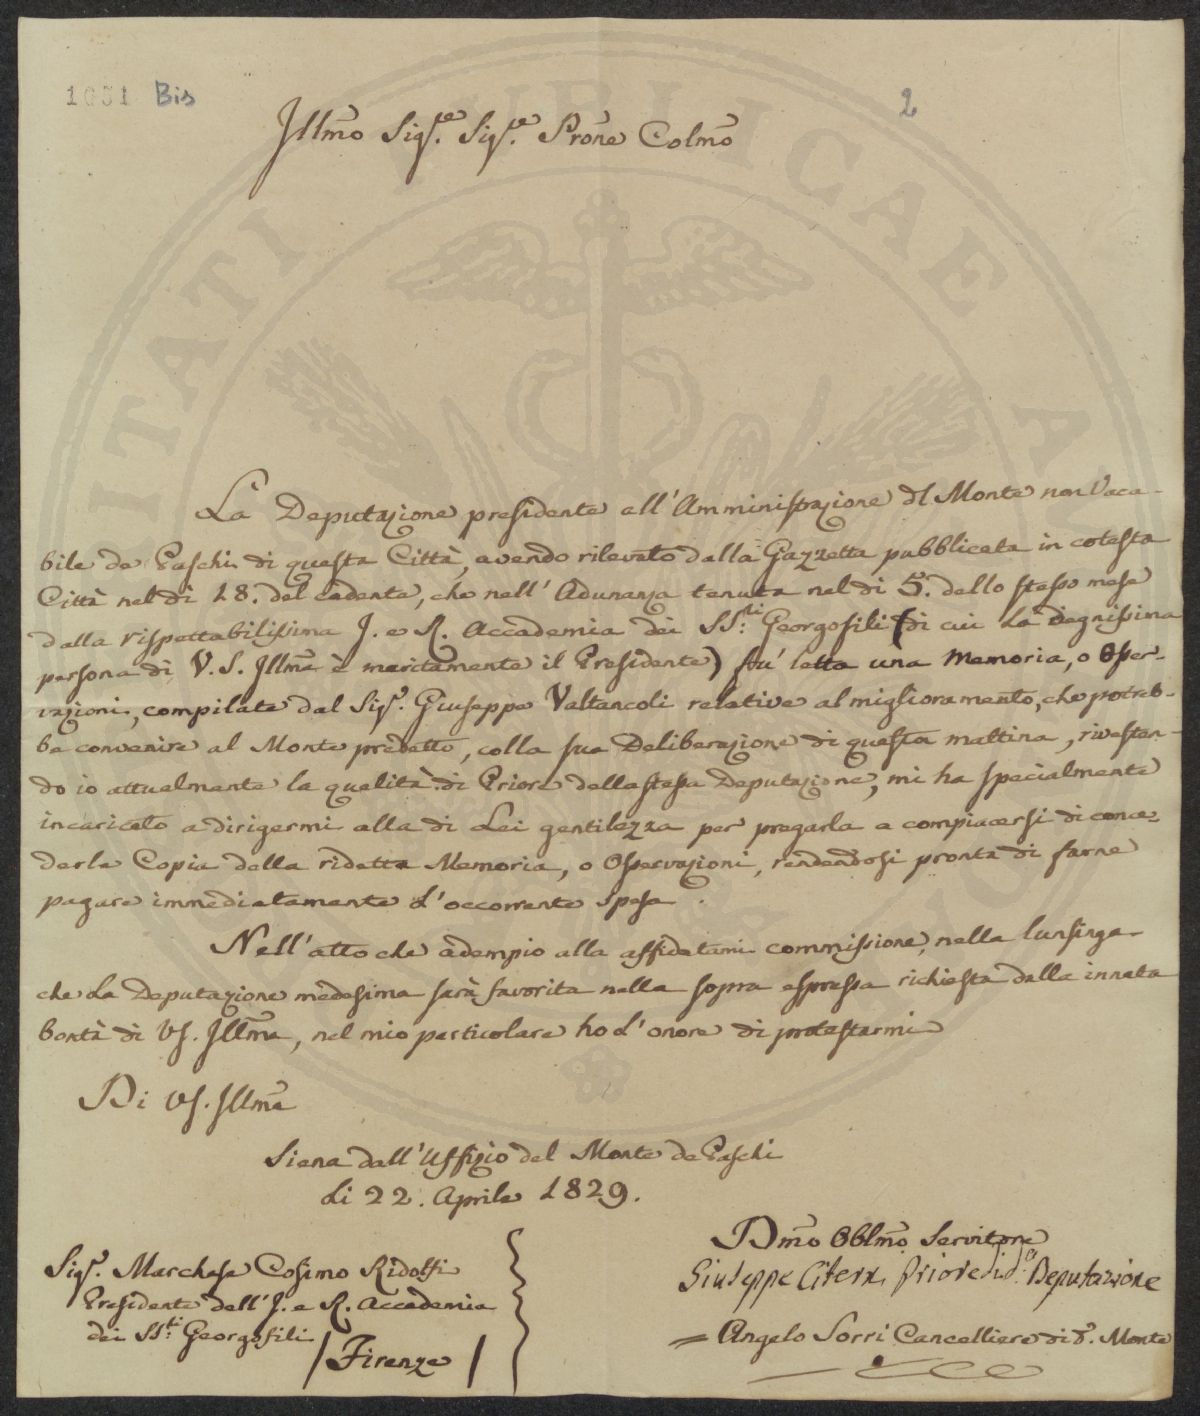 1031 Bis
2
Illmo Sigre. Sigre. Prone Colmo
La Deputazione presidente all'Amministrazione del Monte non Vaca-
bile de Paschi di questa Città, avendo rilevato dalla Gazzetta pubblicata in cotesta
Città nel dì 18. del cadente, che nell'Adunanza tenuta nel dì 5. dello stesso mese
dalla rispettabilissima I. e R. Accademia dei SSri: Georgofili (di cui la degnissima
persona di V. S. Illma è meritamente il Presidente) fu' letta una Memoria, o Osser-
vazioni, compilate dal Sigr. Giuseppe Valtancoli relative al miglioramento, che potreb-
be convenire al Monte predetto, colla sua Deliberazione di questa mattina, rivesten-
do io attualmente la qualità di Priore della stessa Deputazione, mi ha specialmente
incaricato a dirigermi alla di Lei gentilezza per pregarla a compiacersi di conce-
derle Copia della ridetta Memoria, o Osservazioni, rendendosi pronta di farne
pagare immediatamente l'occorrente spesa.
Nell'atto che adempio alla affidatami commissione, nella lusinga
che la Deputazione medesima sarà favorita nella sopra espressa richiesta dalla innata
bontà di VS. Illma, nel mio particolare ho l'onore di protestarmi
Di VS. Illma
Siena dall'Uffizio del Monte de Paschi
li 22. Aprile 1829.
Dmo Obblmo Servitore
Giuseppe Priore di da Deputazione
= Angelo Sorri Cancelliere di do. Monte
Sigr. Marchese Cosimo Ridolfi
Presidente dell'I. e R. Accademia
dei SSri: Georgofili
/ Firenze /
ITATI ELICAE A